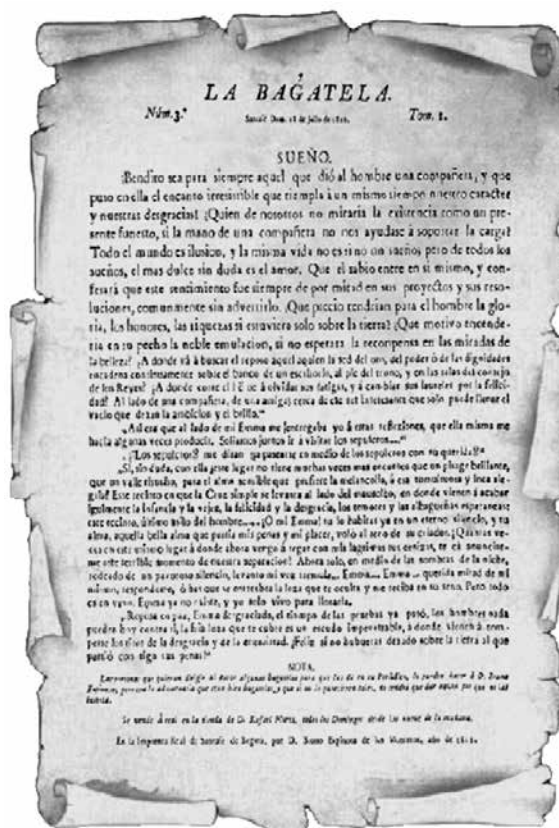 LA BAGATELA.
Núm. 3.º Santafé Dom. 28 de Julio de 1811. Tom. 1.
SUEÑO.
¡Bendito sea para siempre aquel que dió al hombre una compañera, y que
puso en ella el encanto irresistible que templa à un mismo tiempo nuestro caracter
y nuestras desgracias! ¡Quien de nosotros no miraria la existencia como un pre-
sente funesto, si la mano de una compañera no nos ayudase à soportar la carga?
Todo el mundo es ilusion, y la misma vida no es si no un sueño; pero de todos los
sueños, el mas dulce sin duda es el amor. Que el sabio entre en si mismo, y con-
fesará que este sentimiento fue siempre de por mitad en sus proyectos y sus reso-
luciones, comunmente sin advertirlo. ¡Que precio tendrian para el hombre la glo-
ria, los honores, las riquezas si estuviera solo sobre la tierra? ¡Que motivo encende-
ria en su pecho la noble emulacion, si no esperara la recompensa en las miradas de
la belleza? ¿A donde vá à buscar el reposo aquel à quien la sed del oro, del poder ó de las dignidades
encadena continuamente sobre el banco de un escritorio, al pie del trono, y en las salas del consejo
de los Reyes? ¿A donde corre el à olvidar sus fatigas, y à cambiar sus laureles por la felici-
dad? Al lado de una compañera, de una amiga; cerca de ella que solo puede llenar el
vacio que dexan la ambicion y el brillo."
"Asi era que al lado de mi Emma me entregaba yo à estas reflexiones, que ella misma me
hacia algunas veces producir. Soliamos juntos ir à visitar los sepulcros..."
"¡Los sepulcros? me diran ¿ pasearse en medio de los sepulcros con su querida?"
"Si, sin duda, con ella este lugar no tiene muchas veces mas encantos que un parage brillante,
que un valle risueño, para el alma sensible que prefiere la melancolia, à esa tumultuosa y loca ale-
gria? Este recinto en que la Cruz simple se levanta al lado del mausoléo, en donde vienen à acabar
igualmente la infancia y la vejez, la felicidad y la desgracia, los temores y las alhagueñas esperanzas:
este recinto, último asilo del hombre.... ¡O mi Emma! tu lo habitas ya en un eterno silencio, y tu
alma, aquella bella alma que partia mis penas y mi placer, voló al seno de su criador. ¡Quantas ve-
ces en este mismo lugar à donde ahora vengo à regar con mis lagrimas tus cenizas, te
este terrible momento de nuestra separacion! Ahora solo, en medio de las sombras de la noche,
rodeado de un pavoroso silencio, levanto mi voz tremula... Emma... Emma... querida mitad de mi
mismo, respondeme, ó haz que se entreabra la loza que te oculta y me reciba en su seno. Pero todo
es en vano. Emma ya no existe, y yo solo vivo para llorarla.
"Reposa en paz, Emma desgraciada, el tiempo de las pruebas ya pasó, los hombres nada
pueden hoy contra ti, la fria loza que te cubre es un escudo impenetrable, à donde vienen à rom-
perse los tiros de la desgracia y de la enemistad. ¡Feliz si no hubieras dexado sobre la tierra al que
partió con tigo tus penas!"
NOTA.
Las personas que quieran dirigir al Autor algunas bagatelas para que las dé en su Periódico, lo podrán hacer á D. Bruno
Espinosa, pero con la advertencia que sean bien bagatelas, y que si no lo parecieren tales, no tendrá que dar razon por que no las
inserta.
Se vende à real en la tienda de D. Rafael Flores, todos los Domingos desde las nueve de la mañana.
En la Imprenta Real de Santafé de Bogotá, por D. Bruno Espinosa de los Monteros, año de 1811.